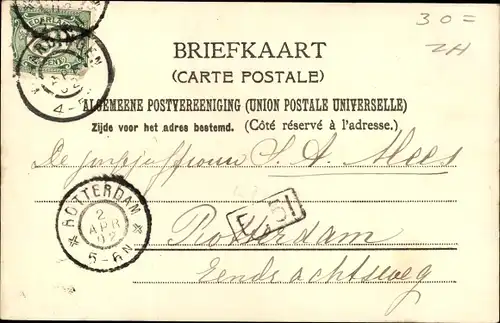 30=
ZH
NEDERLAND
VLAARDINGEN
APR
02
4-5
BRIEFKAART
(CARTE POSTALE)
ALGEMEENE POSTVEREENIGING (UNION POSTALE UNIVERSELLE)
Zijde voor het adres bestemd. (Côté réservé à l'adresse.)
De Jongejufvrouw S. A. Mees
E 51
Rotterdam
Eendrachtsweg
ROTTERDAM
2
APR
02
5-6N